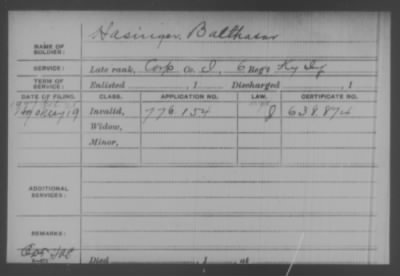 Hasinger, Balthasar
NAME OF
SOLDIER:
SERVICE: Late rank, Corp Co. I, 6 Reg't Ky Inf
TERM OF
SERVICE: Enlisted , 1 Discharged , 1
DATE OF FILING. CLASS. APPLICATION NO. LAW. CERTIFICATE NO.
Invalid, 776.154 638.874
Widow,
Minor,
ADDITIONAL
SERVICES:
REMARKS:
Died , 1 , at